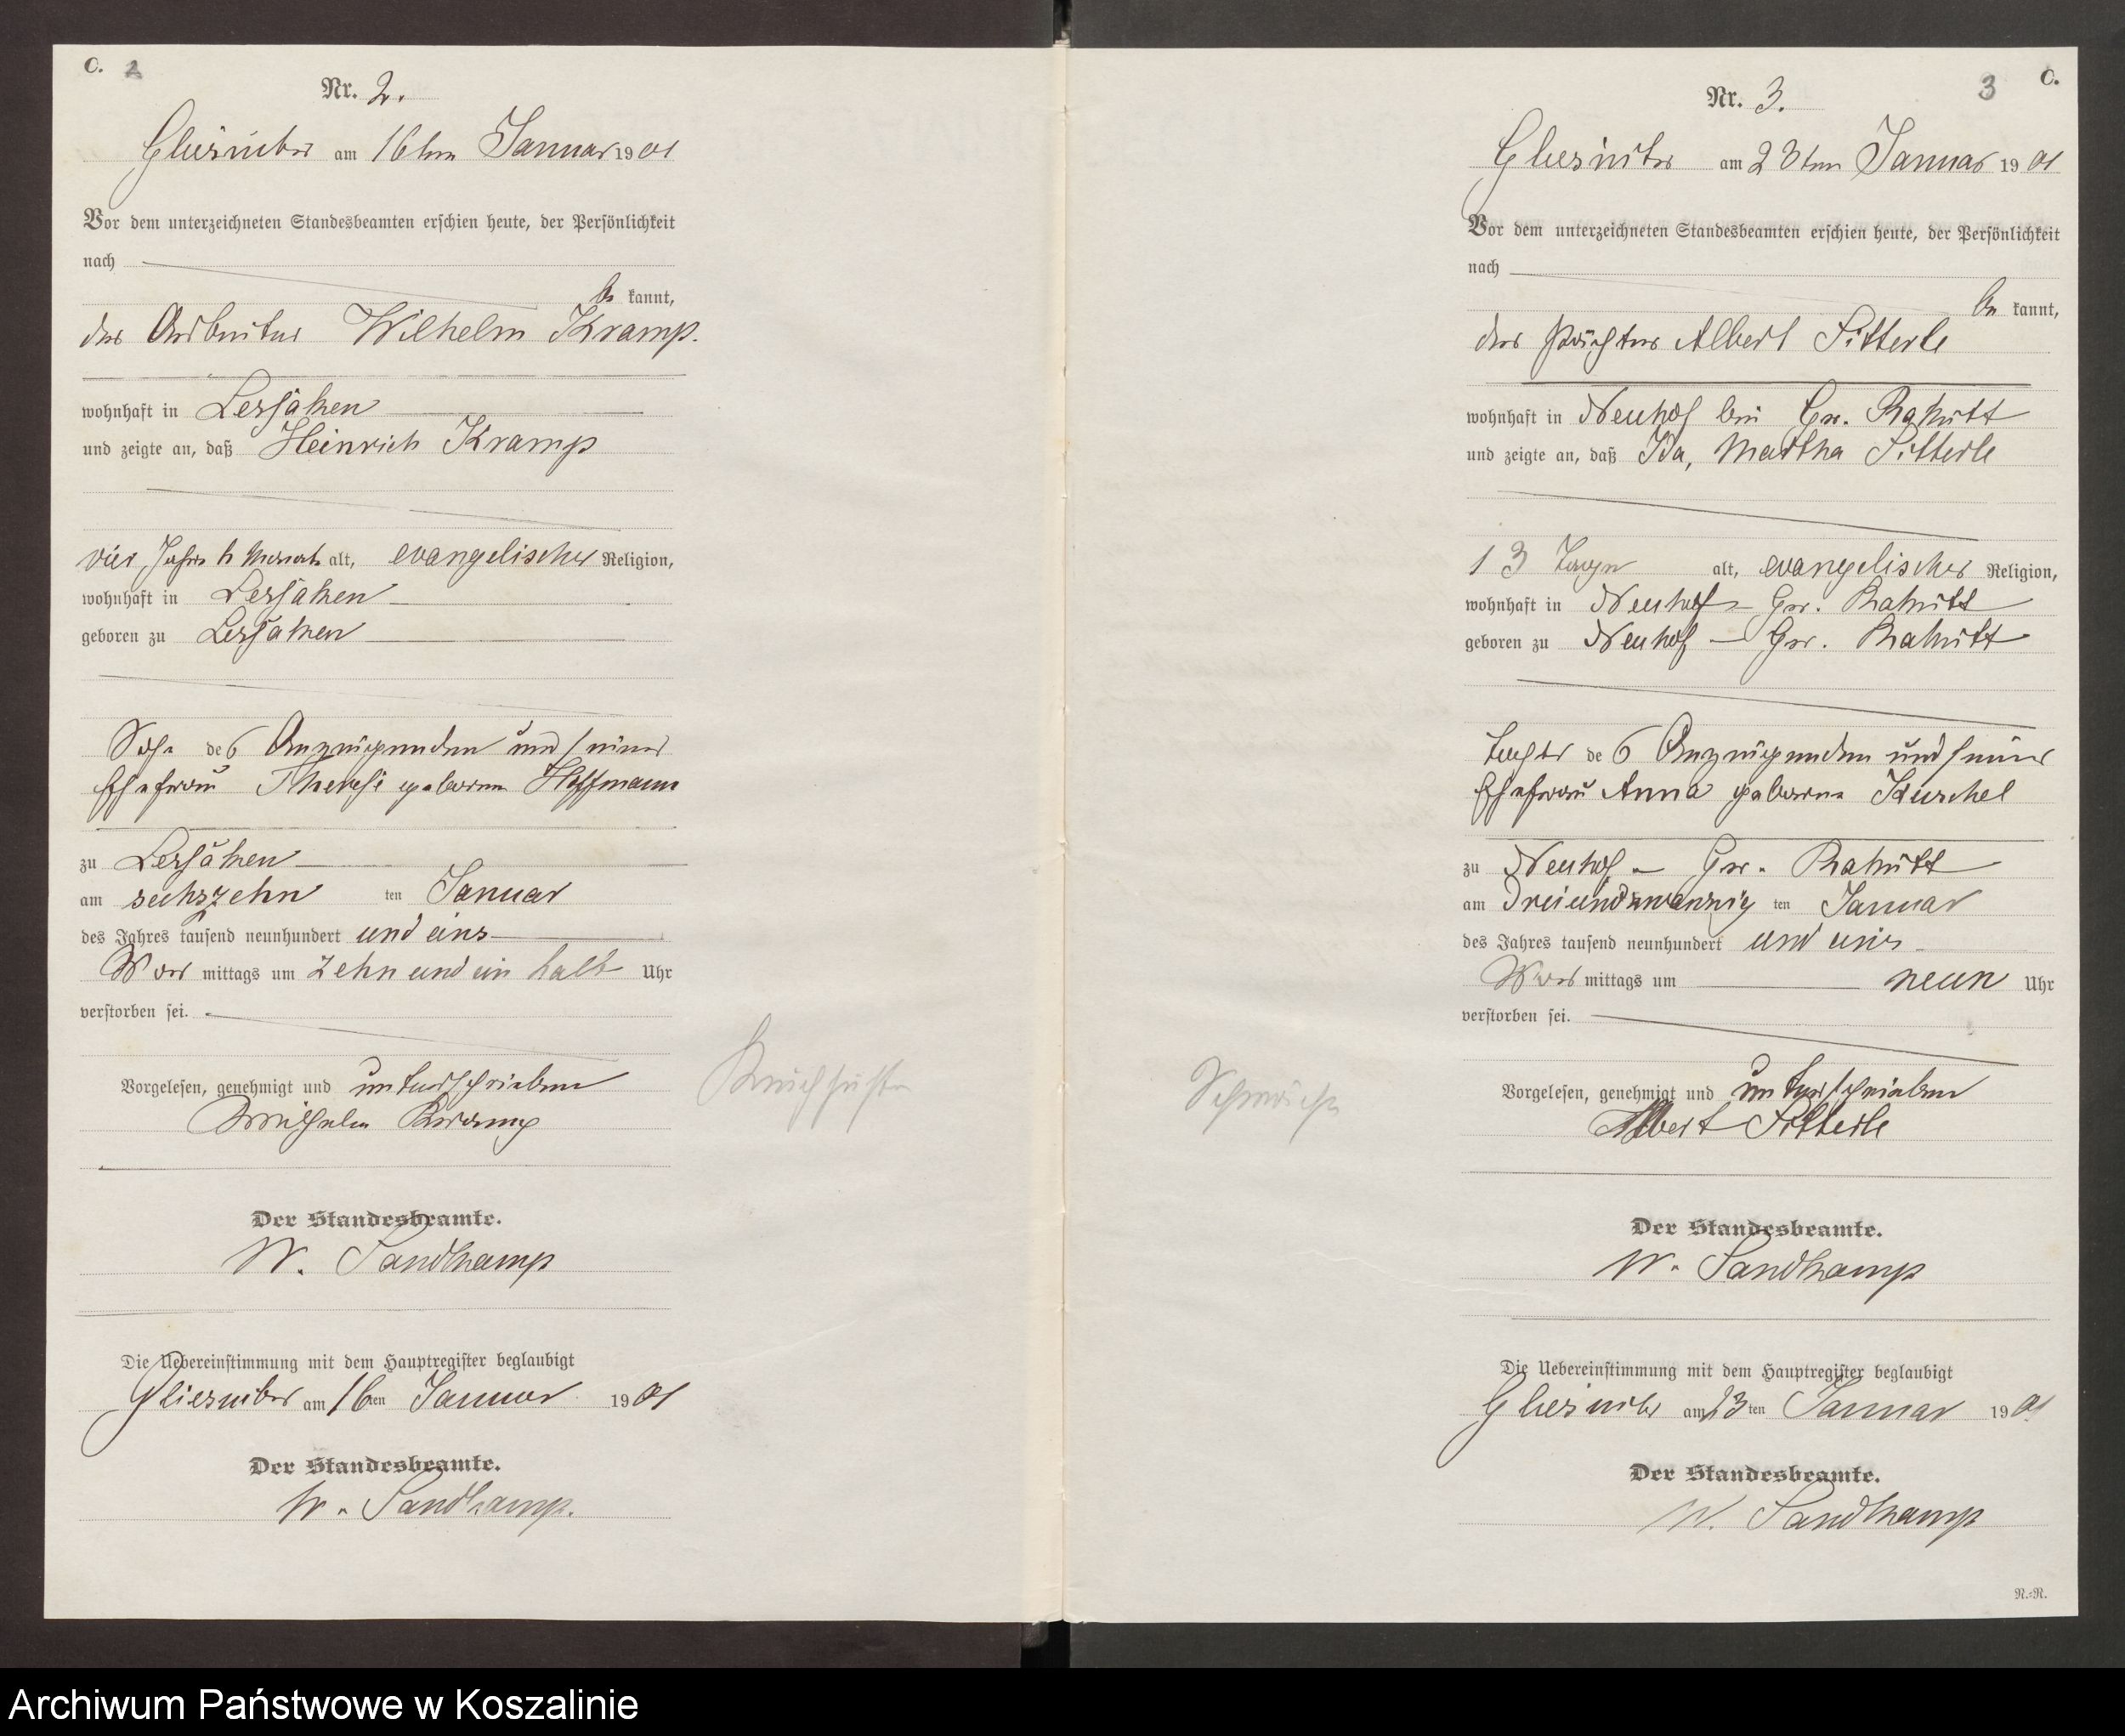 C. 2
Nr. 2.
am 16ten Januar 1901
Vor dem unterzeichneten Standesbeamten erschien heute, der Persönlichkeit
nach
be kannt,
der Arbeiter Wilhelm Kramp.
wohnhaft in Lessaken
und zeigte an, daß Heinrich Kramp
vier Jahre Monate alt, evangelischer Religion,
wohnhaft in Lessaken
geboren zu Lessaken
Sohn des Anzeigenden und seiner
Ehefrau Therese geborene Hoffmann
zu Lessaken
am sechszehn ten Januar
des Jahres tausend neunhundert und eins
Vor mittags um zehn und ein halb Uhr
verstorben sei.
Vorgelesen, genehmigt und unterschrieben
Wilhelm Kramp
Der Standesbeamte.
W. Sandkamp
Die Uebereinstimmung mit dem Hauptregister beglaubigt
am 16ten Januar 1901
Der Standesbeamte.
W. Sandkamp.
Keuchhusten
3 C.
Nr. 3.
am 23ten Januar 1901
Vor dem unterzeichneten Standesbeamten erschien heute, der Persönlichkeit
nach
be kannt,
der Pächter Albert Sitterle
wohnhaft in Neuhof bei Gr. Rakitt
und zeigte an, daß Ida, Martha Sitterle
13 Tage alt, evangelischer Religion,
wohnhaft in Neuhof - Gr. Rakitt
geboren zu Neuhof - Gr. Rakitt
Tochter des Anzeigenden und seiner
Ehefrau Anna geborene Kuschel
zu Neuhof - Gr. Rakitt
am dreiundzwanzig ten Januar
des Jahres tausend neunhundert und eins
Vor mittags um neun Uhr
verstorben sei.
Vorgelesen, genehmigt und unterschrieben
Albert Sitterle
Schwäche
Der Standesbeamte.
W. Sandkamp
Die Uebereinstimmung mit dem Hauptregister beglaubigt
am 23ten Januar 1901
Der Standesbeamte.
W. Sandkamp
N.=N.
Archiwum Państwowe w Koszalinie